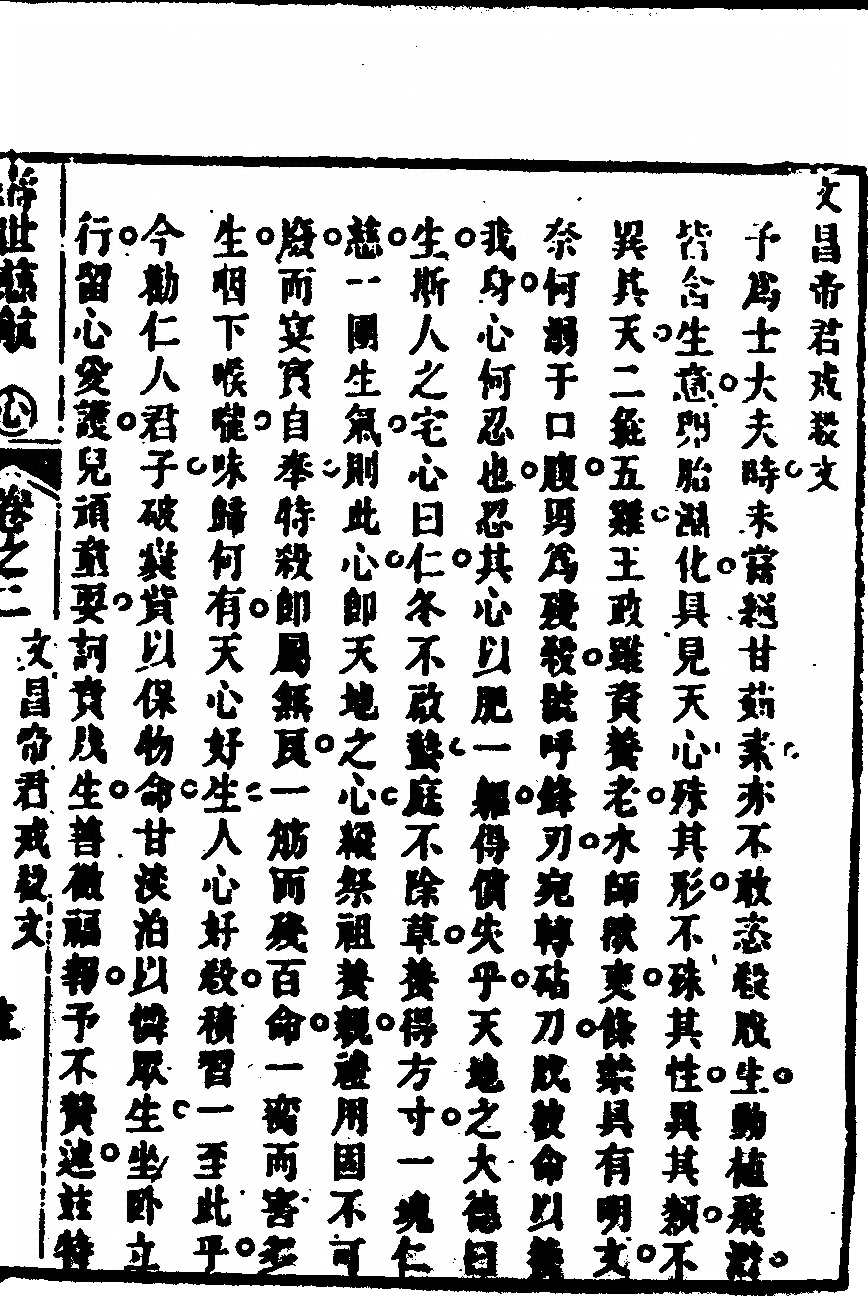 文昌帝君戒殺文
予爲士大夫時未嘗絕甘茹素亦不敢恣殺戕生動植飛潛
皆含生意卵胎濕化具見天心殊其形不殊其性異其類不
異其天二簋五雞王政雖資養老水師獻叟條禁具有明文
奈何溺于口腹男爲殘殺號呼鋒刃宛轉砧刀戕彼命以養
我身心何忍也忍其心以肥一軀得償失乎天地之大德曰
生斯人之宅心曰仁冬不啟蟄庭不除草養得方寸一塊仁
慈一團生氣則此心即天地之心縱祭祖養親禮用固不可
廢而宴賓自奉特殺即屬無良一筋而殘百命一臠而害多
生咽下喉嚨味歸何有天心好生人心好殺積習一至此乎
今勸仁人君子破凝貲以保物命甘淡泊以憐眾生坐卧立
行留心愛護兒頑童耍訶責戕生善徵福報予不贅述玆特
靜世慈航 心 卷之二 文昌帝君戒殺文